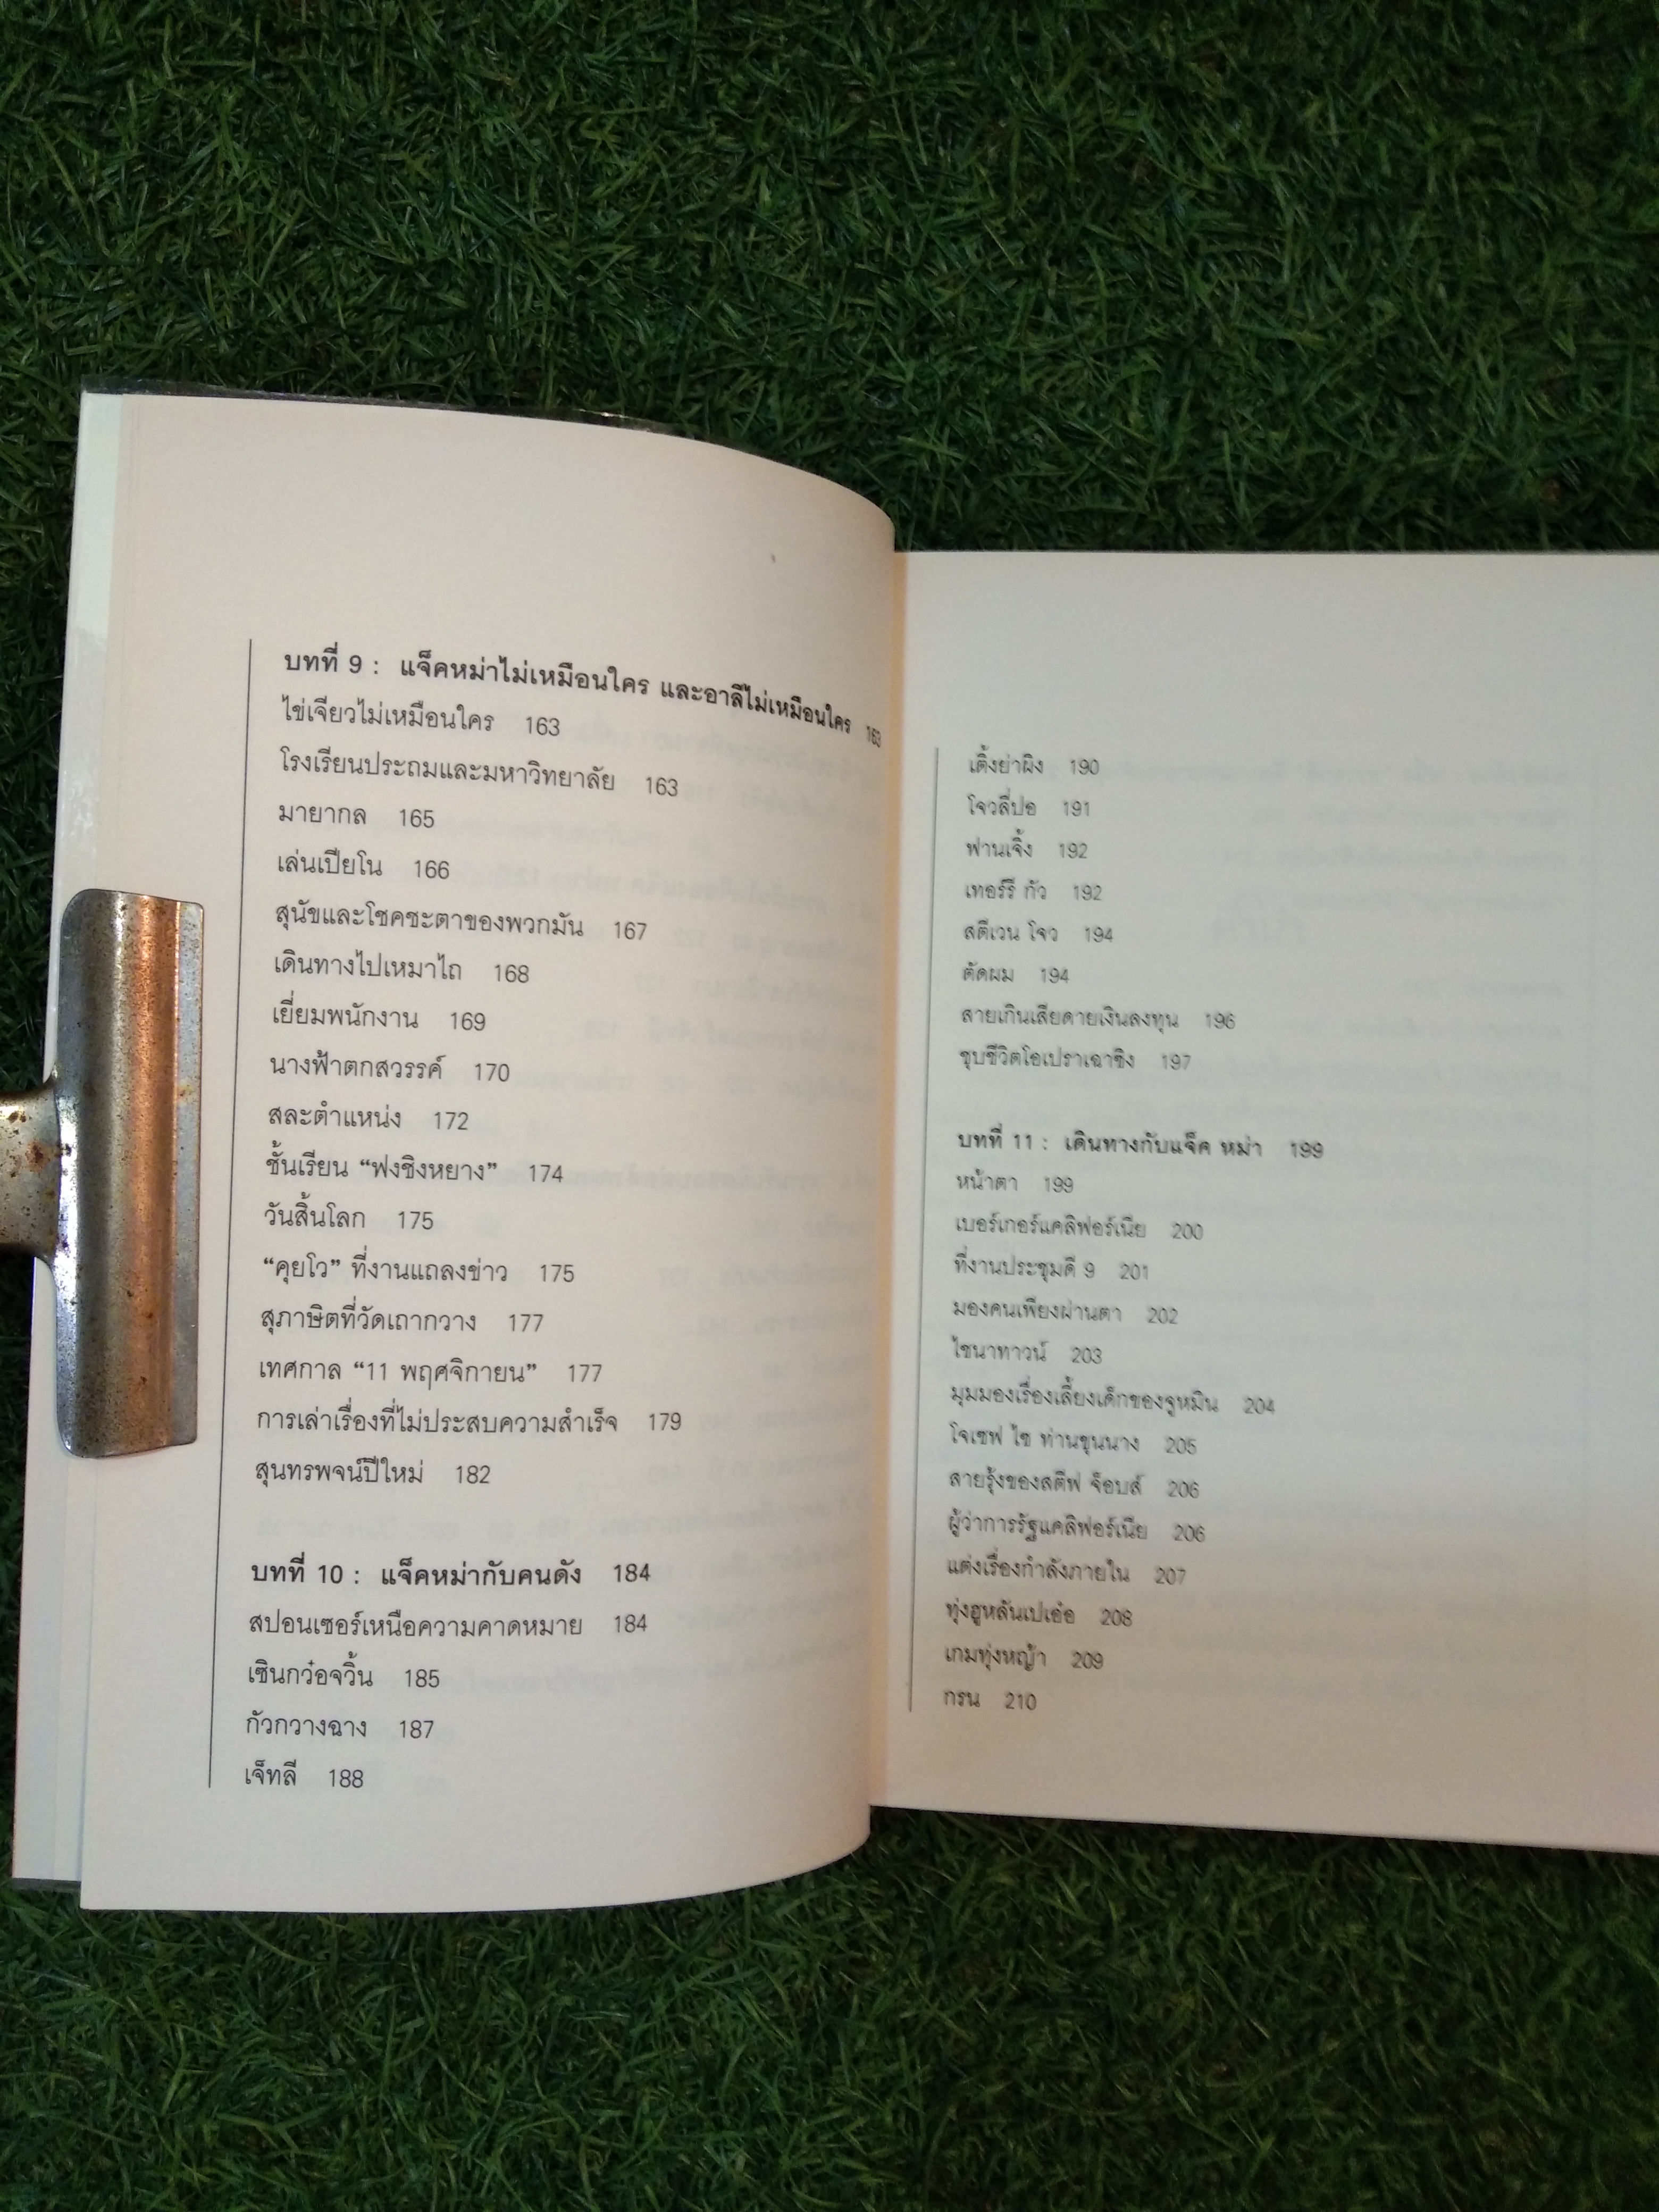 บทที่ 9 : แจ็คหม่าไม่เหมือนใคร และอาลีไม่เหมือนใคร 163
ไข่เจียวไม่เหมือนใคร 163
โรงเรียนประถมและมหาวิทยาลัย 163
มายากล 165
เล่นเปียโน 166
สุนัขและโชคชะตาของพวกมัน 167
เดินทางไปเหมาไถ 168
เยี่ยมพนักงาน 169
นางฟ้าตกสวรรค์ 170
สละตำแหน่ง 172
ชั้นเรียน “ฟงชิงหยาง” 174
วันสิ้นโลก 175
“คุยโว” ที่งานแถลงข่าว 175
สุภาษิตที่วัดเถากวาง 177
เทศกาล “11 พฤศจิกายน” 177
การเล่าเรื่องที่ไม่ประสบความสำเร็จ 179
สุนทรพจน์ปีใหม่ 182
บทที่ 10 : แจ็คหม่ากับคนดัง 184
สปอนเซอร์เหนือความคาดหมาย 184
เซินกว๋อจวิ้น 185
กัวกวางฉาง 187
เจ็ทลี 188
เติ้งย่าผิง 190
โจวลี่ปอ 191
ฟานเจิ้ง 192
เทอร์รี กัว 192
สตีเวน โจว 194
ตัดผม 194
สายเกินเสียดายเงินลงทุน 196
ชุบชีวิตโอเปราเฉาซิง 197
บทที่ 11 : เดินทางกับแจ็ค หม่า 199
หน้าตา 199
เบอร์เกอร์แคลิฟอร์เนีย 200
ที่งานประชุมดี 9 201
มองคนเพียงผ่านตา 202
ไชนาทาวน์ 203
มุมมองเรื่องเลี้ยงเด็กของจูหมิน 204
โจเซฟ ไช ท่านขุนนาง 205
สายรุ้งของสตีฟ จ็อบส์ 206
ผู้ว่าการรัฐแคลิฟอร์เนีย 206
แต่งเรื่องกำลังภายใน 207
ทุ่งฮูหลันเปเอ๋อ 208
เกมทุ่งหญ้า 209
กรน 210